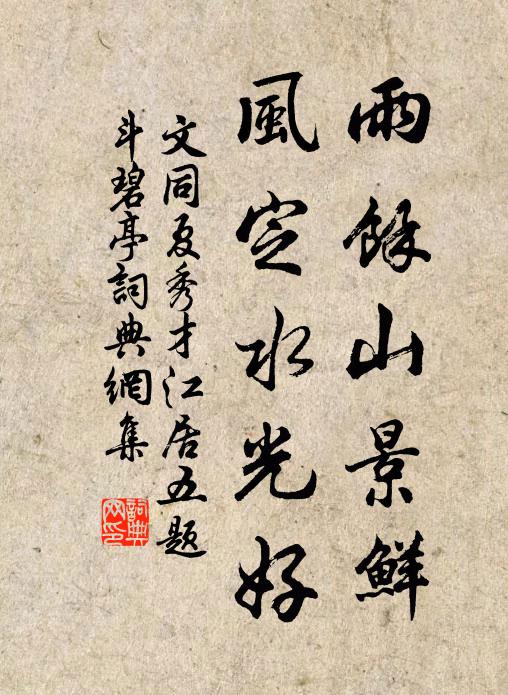 雨餘山景鮮
風定水光好
文同夏秀才江居五题
斗碧亭詞典網集
詞典
网印